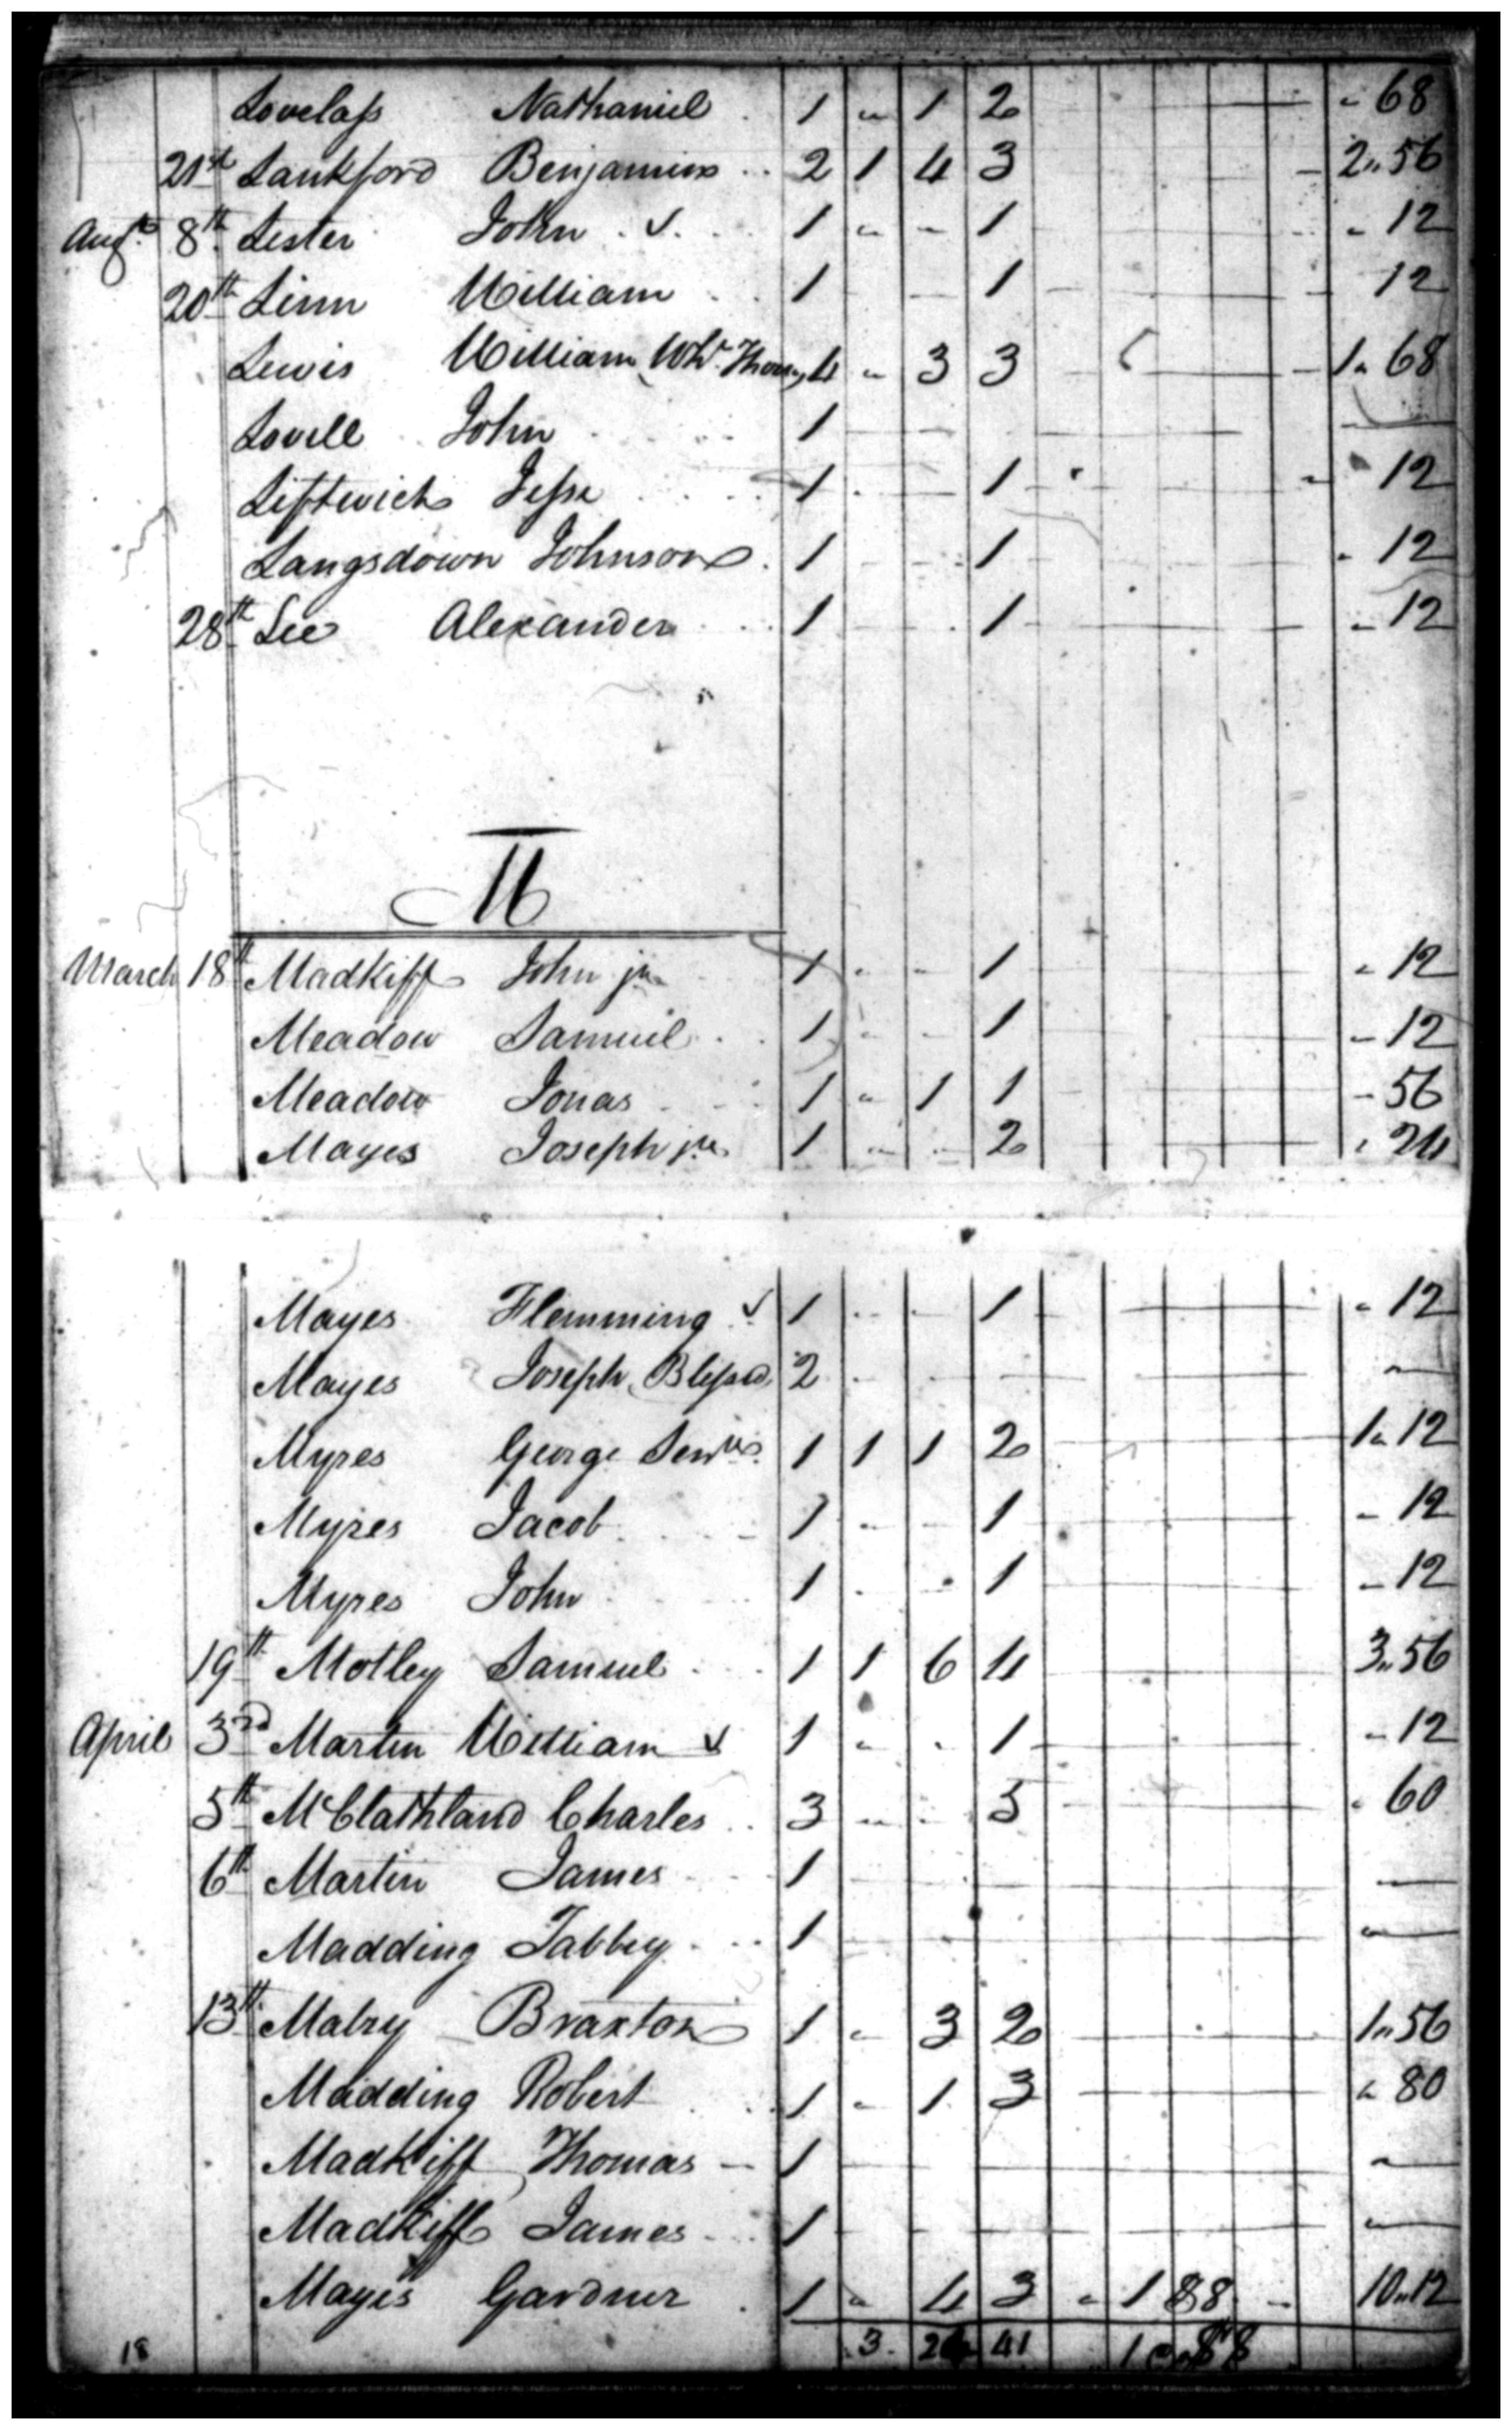 Lovelass Nathaniel 1 " 1 2 " 68
21st Lankford Benjamin 2 1 4 3 2" 56
Augt 8th Lester John 1 " " 1 " 12
20th Linn William 1 1 12
Lewis William, Wh. Thomas 4 " 3 3 1" 68
Lovell John 1
Liftwich Jesse 1 1 12
Langsdown Johnson 1 1 " 12
28th Lee Alexander 1 1 " 12
M
March 18th Madkiff John jr 1 1 " 12
Meadow Samuel 1 1 " 12
Meadow Jonas 1 " 1 1 " 56
Mayes Joseph jr. 1 " " 2 " 24
Mayes Flemming 1 1 " 12
Mayes Joseph, Blessd 2
Myres George Senr 1 1 1 2 1" 12
Myres Jacob 1 1 " 12
Myres John 1 1 " 12
19th Motley Samuel 1 1 6 4 3" 56
April 3rd Martin William 1 " " 1 " 12
5th McClathland Charles 3 " " 5 " 60
6th Martin James 1
Madding Tabby 1
13th Mabry Braxton 1 " 3 2 1" 56
Madding Robert 1 " 1 3 " 80
Madkiff Thomas 1
Madkiff James 1
Mayes Gardner 1 " 4 3 " 1 88 10" 12
18 3 24 41 1 88